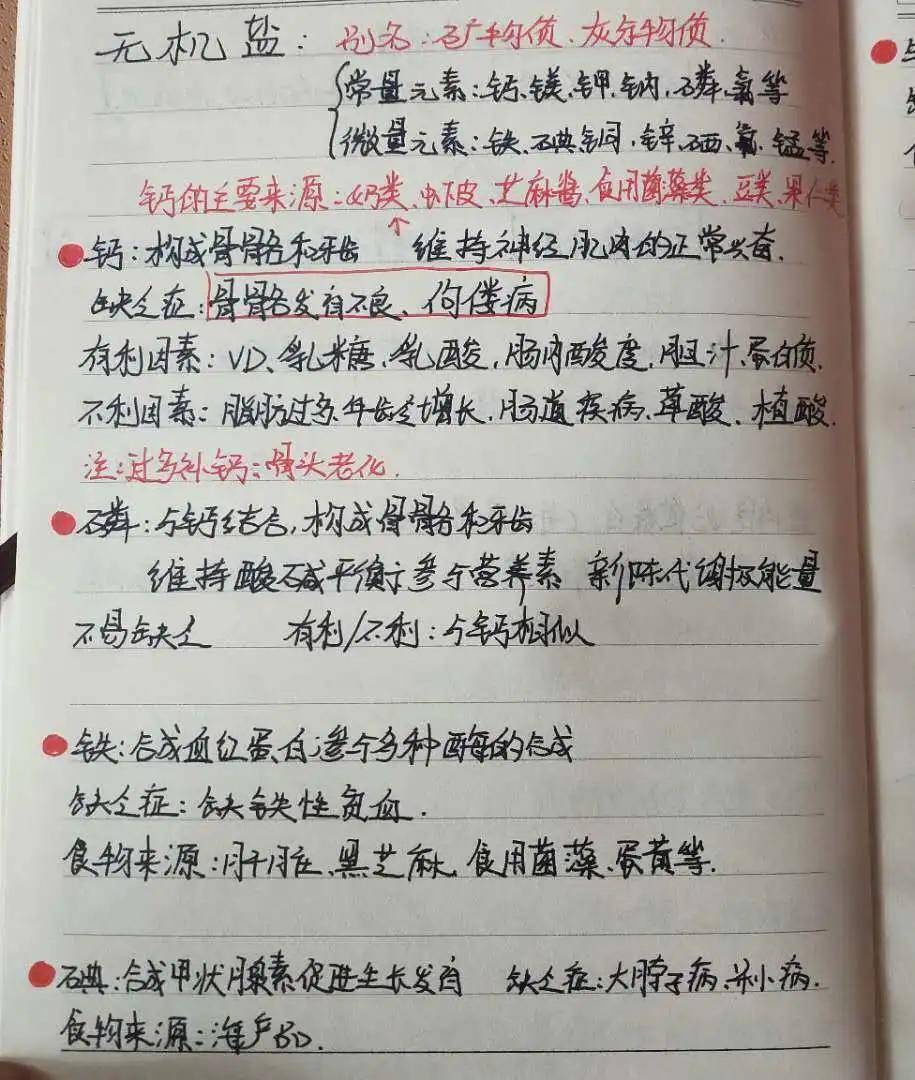 无机盐：别名：矿物质、灰分物质.
常量元素：钙、镁、钾、钠、磷、氯等
微量元素：铁、碘、铜、锌、硒、氟、锰等.
钙的主要来源：奶类、虾皮、芝麻酱、食用菌藻类、豆类、果仁类
钙：构成骨骼和牙齿 ↑ 维持神经肌肉的正常兴奋.
缺乏症：骨骼发育不良、佝偻病
有利因素：VD、乳糖、乳酸，肠内酸度，胆汁、蛋白质.
不利因素：脂肪过多、年龄增长、肠道疾病、草酸、植酸.
注：过多补钙：骨头老化.
磷：与钙结合，构成骨骼和牙齿
维持酸碱平衡；参与营养素 新陈代谢 能量
不易缺乏 有利/不利：与钙相似
铁：合成血红蛋白；参与多种酶的合成
缺乏症：缺铁性贫血.
食物来源：肝脏、黑芝麻、食用菌藻、蛋黄等.
碘：合成甲状腺素促进生长发育 缺乏症：大脖子病、小病.
食物来源：海产品.